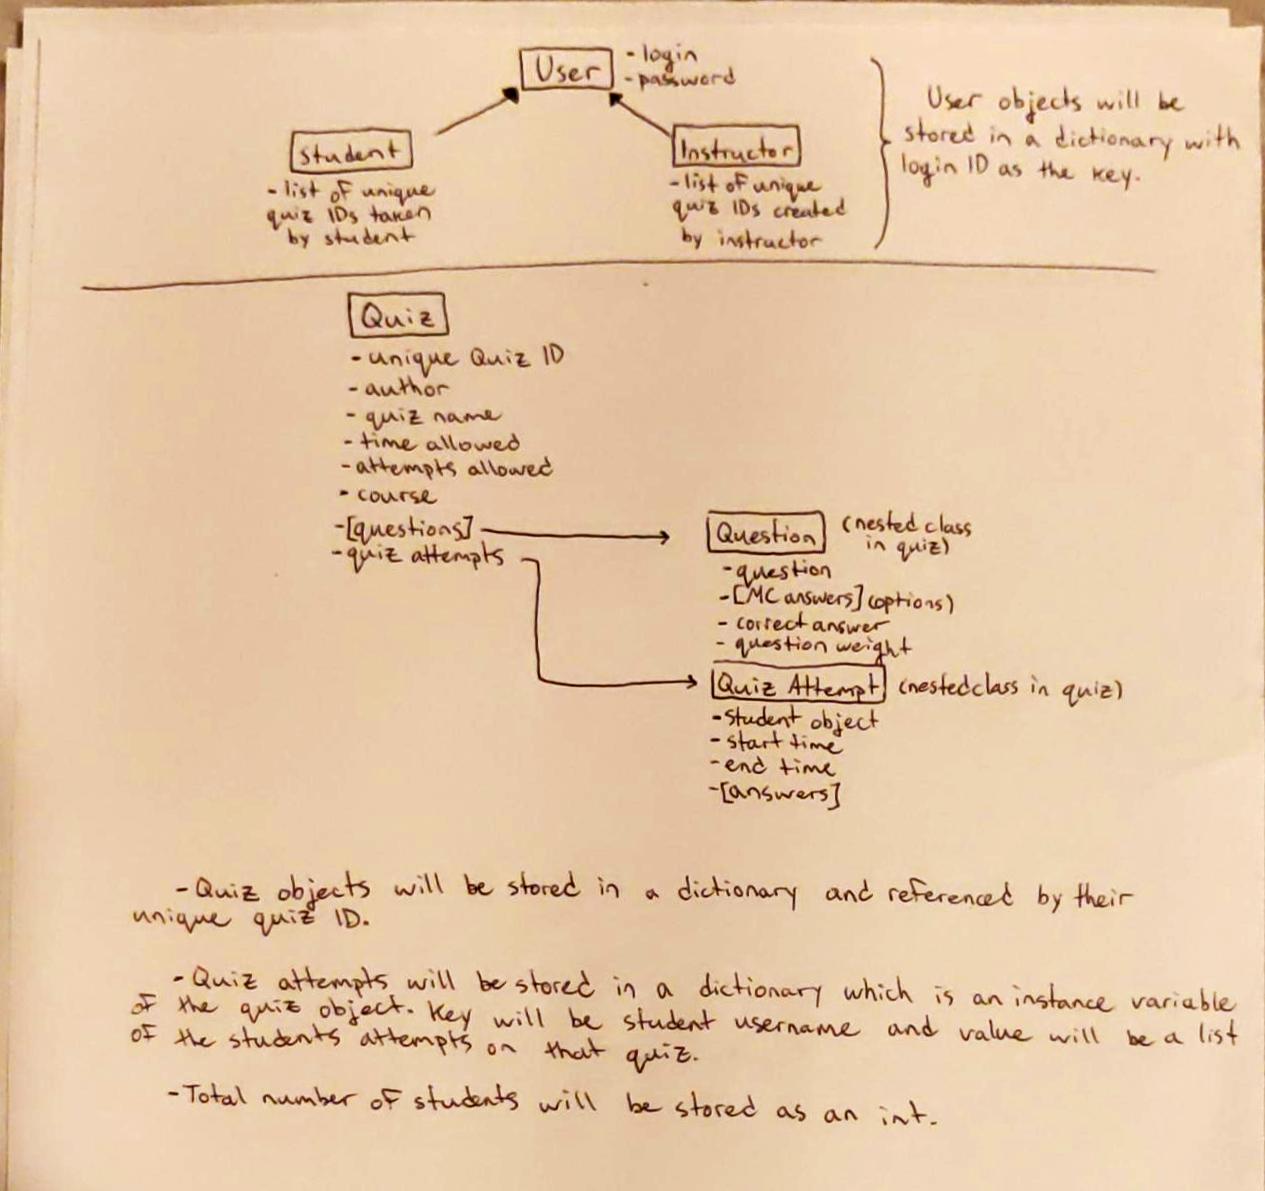 User
- login
- password
User objects will be
stored in a dictionary with
login ID as the key.
Student
- list of unique
quiz IDs taken
by student
Instructor
- list of unique
quiz IDs created
by instructor
Quiz
- unique Quiz ID
- author
- quiz name
- time allowed
- attempts allowed
- course
- [questions]
- quiz attempts
Question (nested class
in quiz)
- question
- [MC answers] (options)
- correct answer
- question weight
Quiz Attempt (nested class in quiz)
- student object
- start time
- end time
- [answers]
- Quiz objects will be stored in a dictionary and referenced by their
unique quiz ID.
- Quiz attempts will be stored in a dictionary which is an instance variable
of the quiz object. Key will be student username and value will be a list
of the students attempts on that quiz.
- Total number of students will be stored as an int.